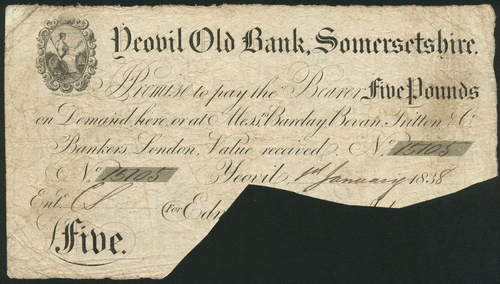 Yeovil Old Bank, Somersetshire.
I Promise to pay the Bearer Five Pounds
on Demand, here, or at Messrs. Barclay, Bevan, Tritton & Co.
Bankers London, Value received. No. 15105
No. 15105 Yeovil 1st January 1838
Entd.
For Edn
Five.